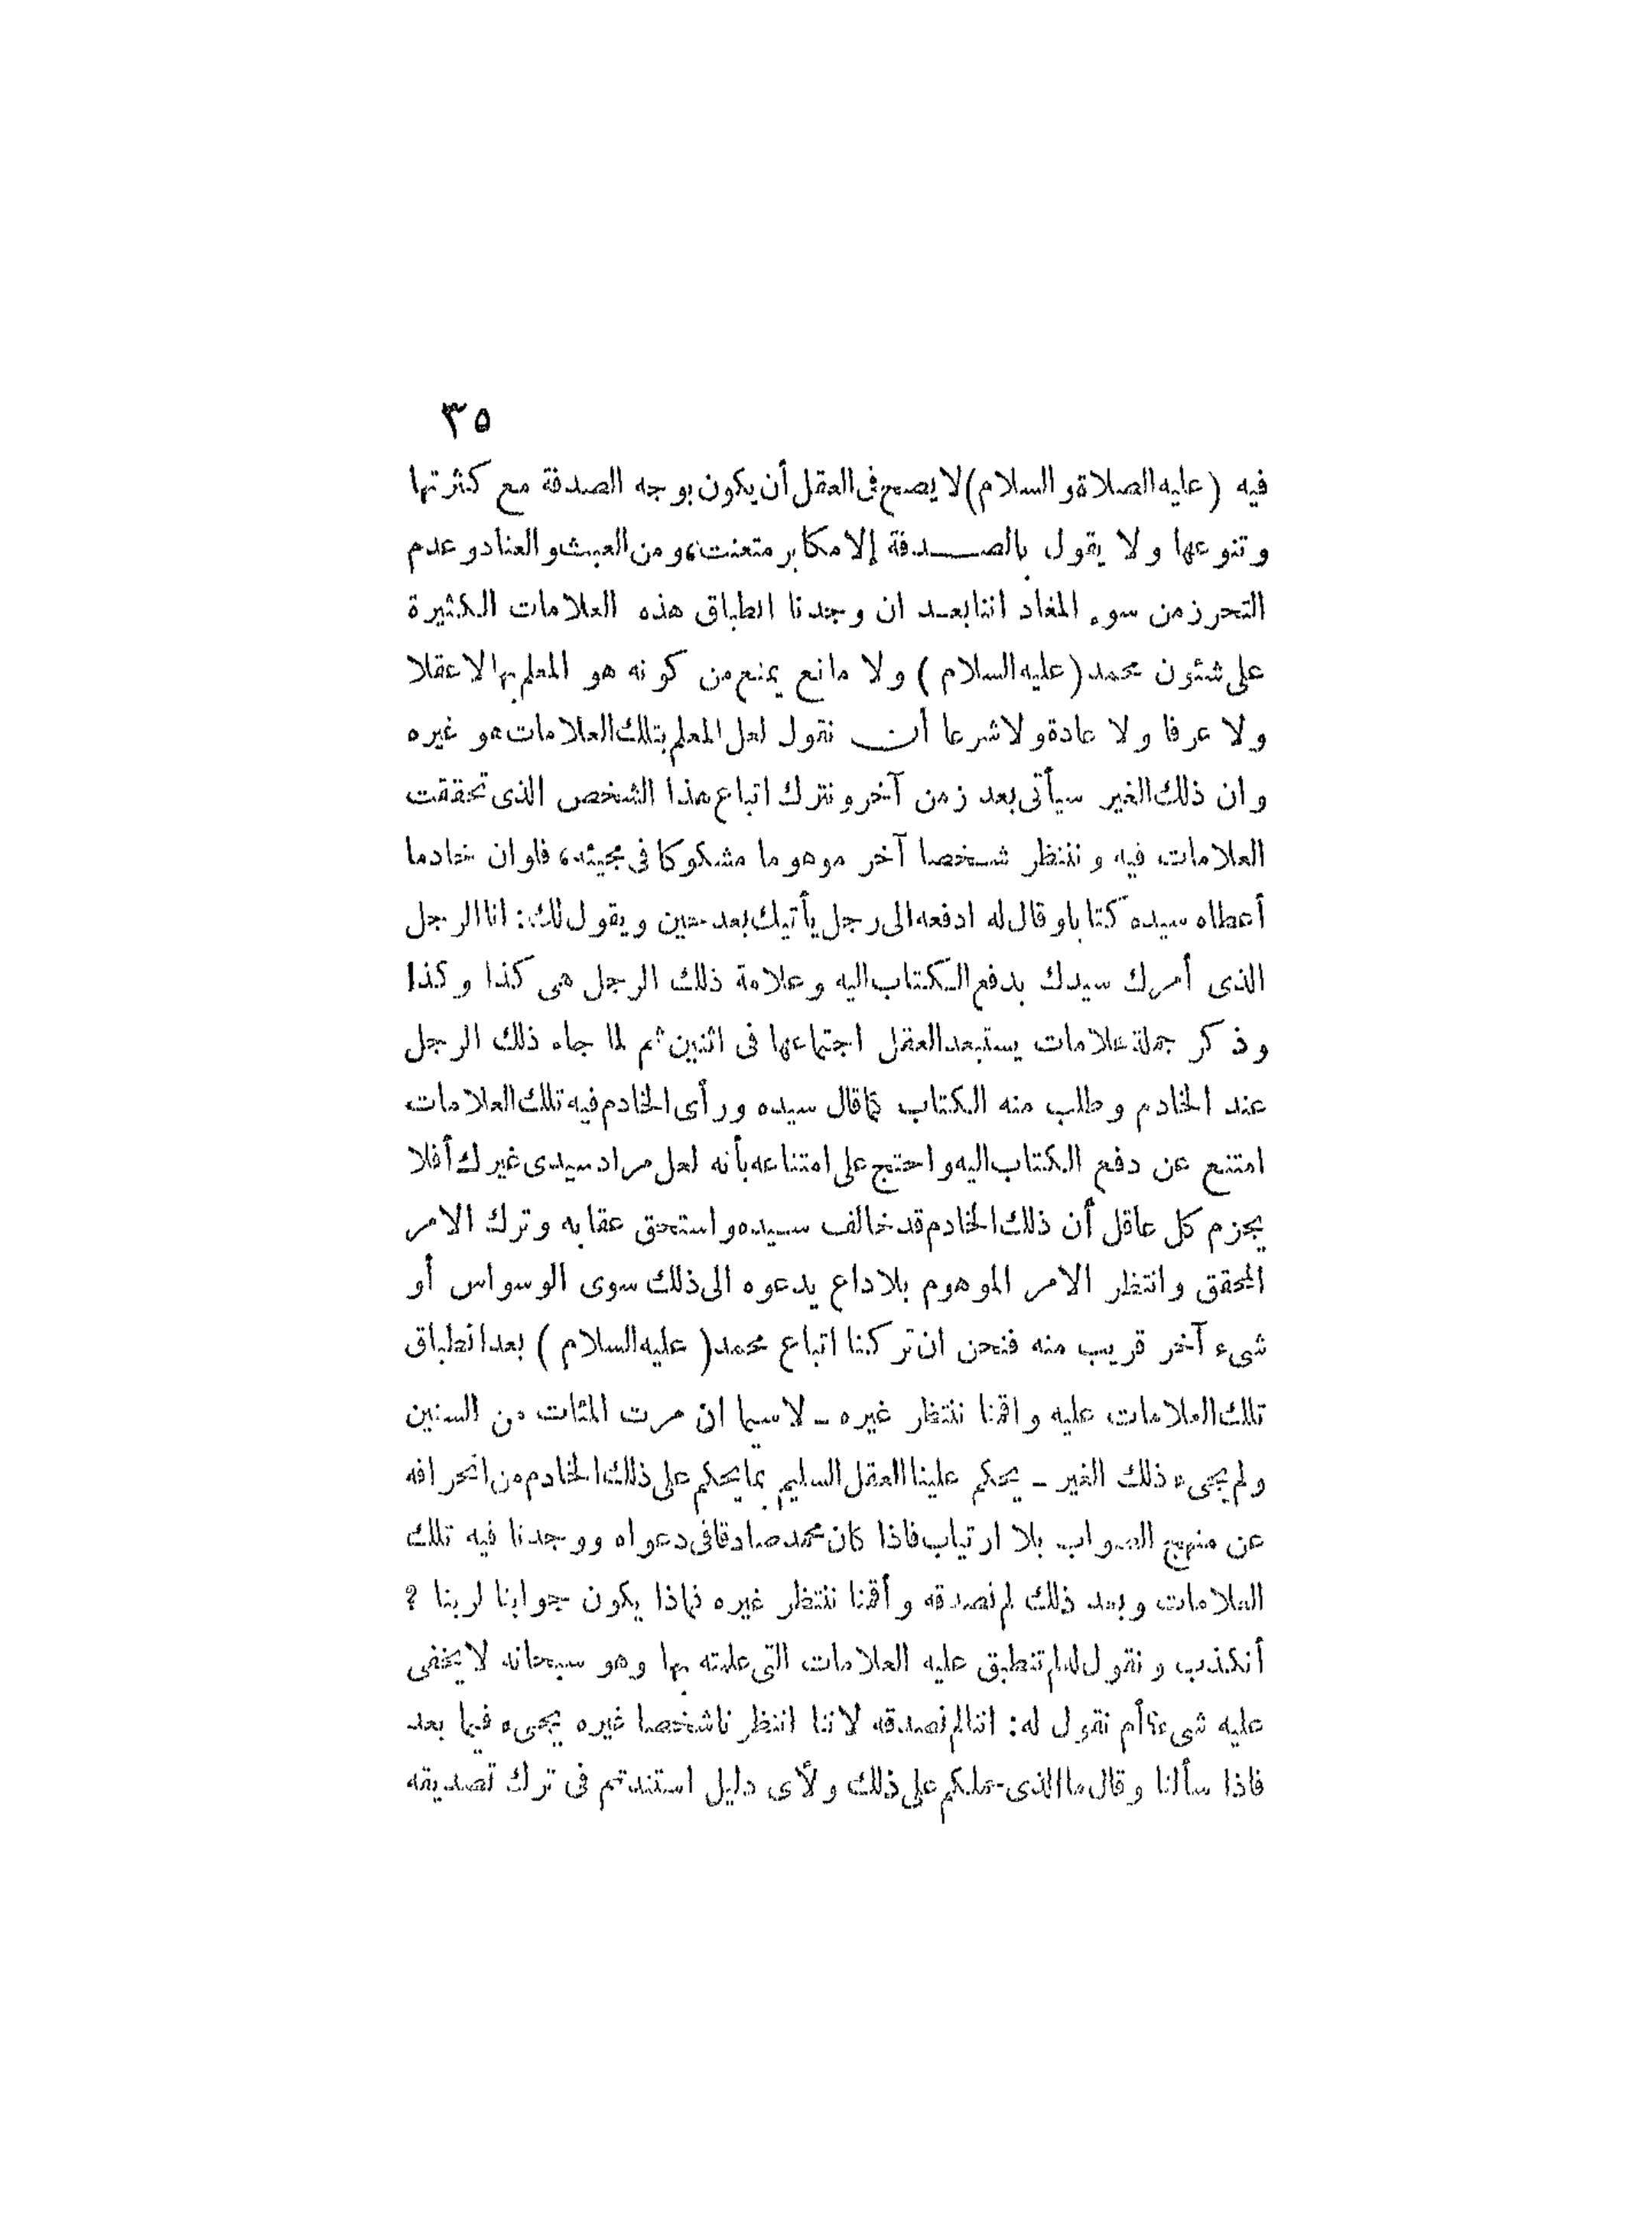 ٣٥
فيه (عليه الصلاة والسلام) لا يصح فى العقل أن يكون بوجه الصدفة مع كثرتها
وتنوعها ولا يقول بالصدفة إلا مكابر متعنت، ومن العبث والعناد وعدم
التحرز من سوء المغاد اننا بعد ان وجدنا انطباق هذه العلامات الكثيرة
على شئون محمد (عليه السلام) ولا مانع يمنع من كونه هو المعلم بها لا عقلا
ولا عرفا ولا عادة ولا شرعا أن نقول لعل المعلم بتلك العلامات هو غيره
وان ذلك الغير سيأتى بعد زمن آخر ونترك اتباع هذا الشخص الذى تحققت
العلامات فيه وننتظر شخصا آخر موهوما مشكوكا فى مجيئه، فلو ان خادما
أعطاه سيده كتابا وقال له ادفعه الى رجل يأتيك بعد حين ويقول لك: انا الرجل
الذى أمرك سيدك بدفع الكتاب اليه وعلامة ذلك الرجل هى كذا وكذا
وذكر جملة علامات يستبعد العقل اجتماعها فى اثنين ثم لما جاء ذلك الرجل
عند الخادم وطلب منه الكتاب كما قال سيده ورأى الخادم فيه تلك العلامات
امتنع عن دفع الكتاب اليه واحتج على امتناعه بأنه لعل مراد سيدى غيرك أفلا
يجزم كل عاقل أن ذلك الخادم قد خالف سيده واستحق عقابه وترك الامر
المحقق وانتظر الامر الموهوم بلا داع يدعوه الى ذلك سوى الوسواس أو
شىء آخر قريب منه فنحن ان تركنا اتباع محمد (عليه السلام) بعد انطباق
تلك العلامات عليه واقمنا ننتظر غيره ـ لا سيما ان مرت المئات من السنين
ولم يجىء ذلك الغير ـ يحكم علينا العقل السليم بما يحكم على ذلك الخادم من انحرافه
عن منهج الصواب بلا ارتياب فاذا كان محمد صادقا فى دعواه ووجدنا فيه تلك
العلامات وبعد ذلك لم نصدقه وأقمنا ننتظر غيره فماذا يكون جوابنا لربنا ؟
أنكذب ونقول له لم تنطبق عليه العلامات التى علمته بها وهو سبحانه لا يخفى
عليه شىء؟ أم نقول له: اننا لم نصدقه لاننا انتظرنا شخصا غيره يجىء فيما بعد
فاذا سألنا وقال ما الذى حملكم على ذلك ولأى دليل استندتم فى ترك تصديقه